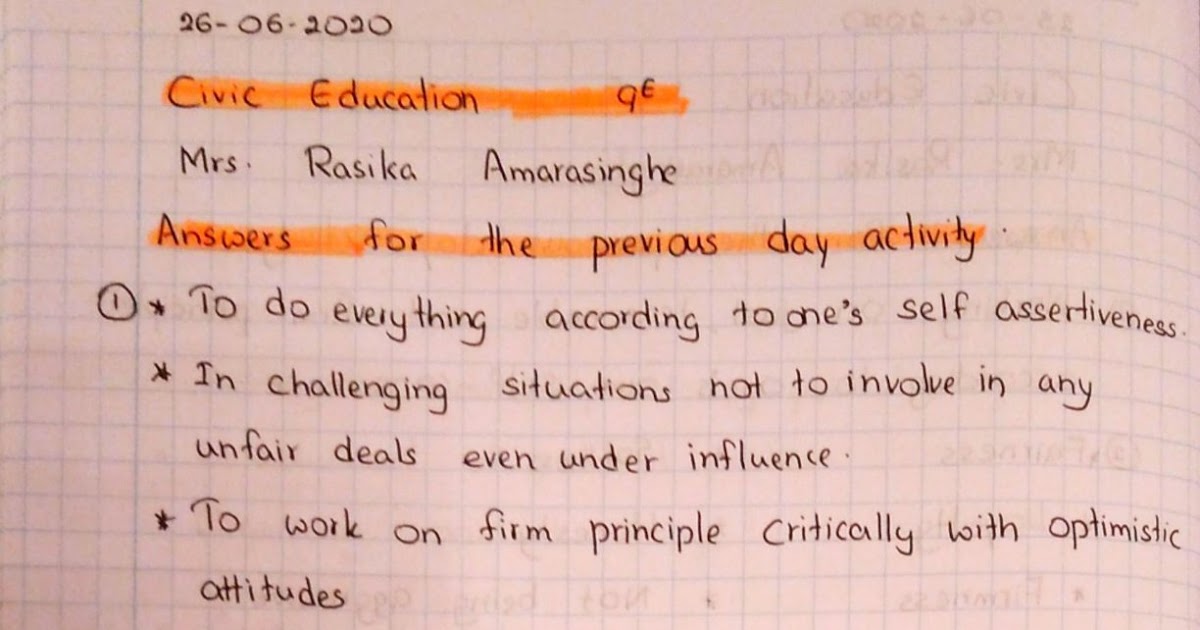 26-06-2020
Civic Education 9E
Mrs. Rasika Amarasinghe
Answers for the previous day activity.
① * To do everything according to one's self assertiveness.
* In challenging situations not to involve in any
unfair deals even under influence.
* To work on firm principle critically with optimistic
attitudes